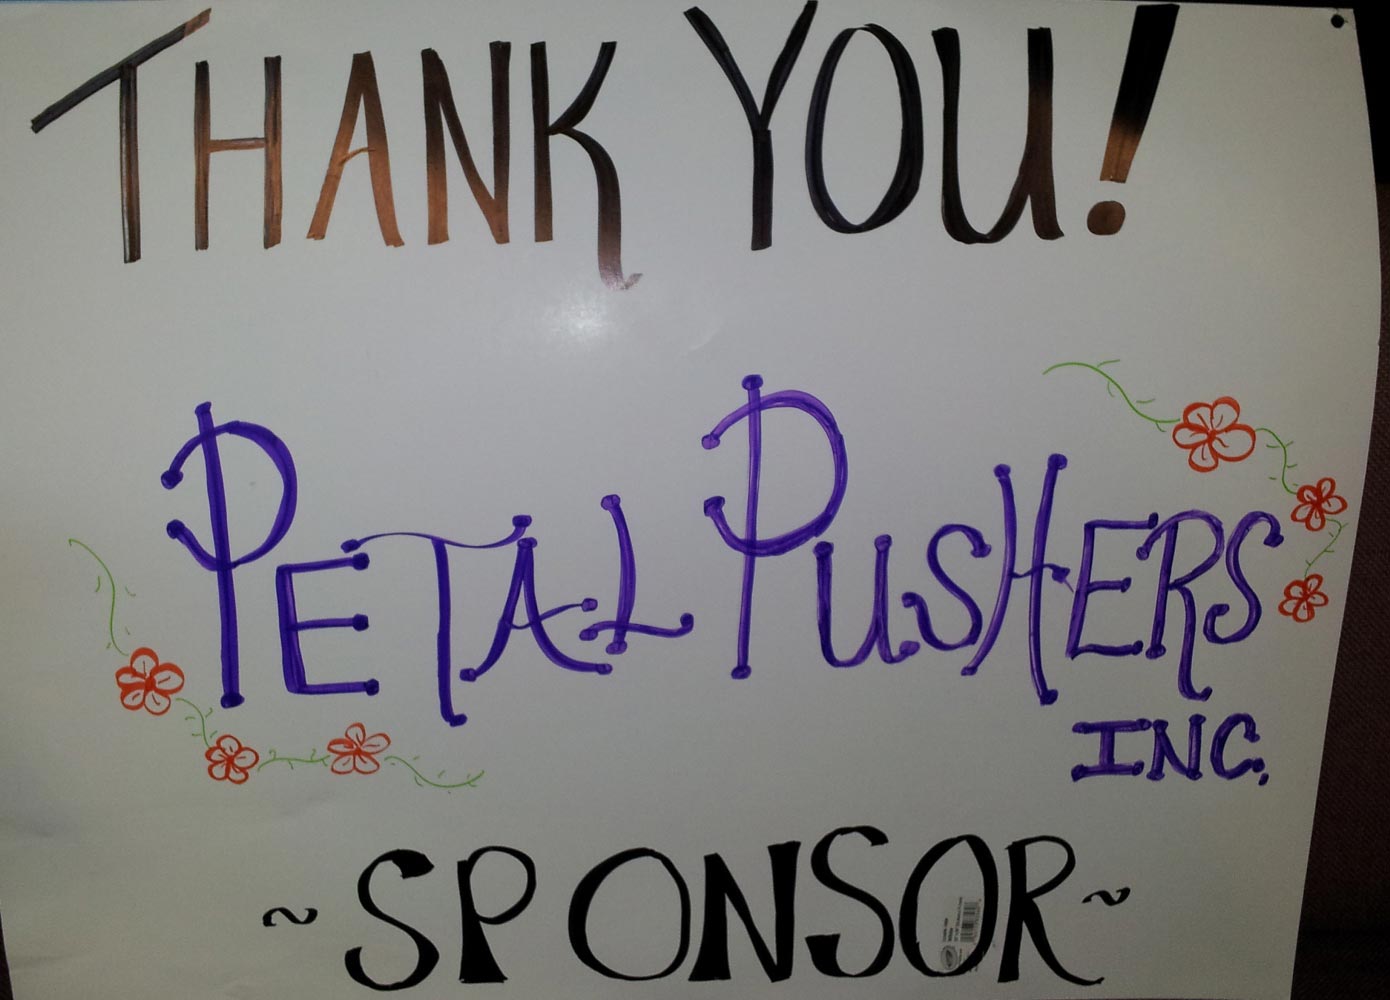 THANK YOU!
PETAL PUSHERS
INC.
~SPONSOR~